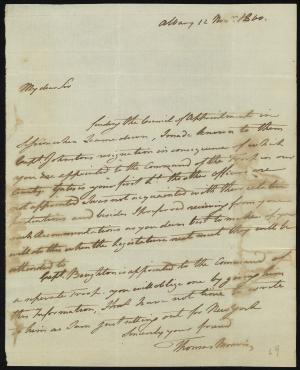 Albany 12 Nov. 1800.
My dear Sir
finding the Council of Appointment in
when I came down, I made known to them
Capt. resignation in consequence of which
you are appointed to the Command of the Troop in our
County. is your first Lt. the other officers are
not appointed I was not acquainted with the
and besides I proposed receiving from you
such Recommendations as you deem but to make of your
when the Legislature next meet they will be
attended to
Capt. is appointed to the Command of
a separate Troop. you will oblige one by giving him
this Information, that I have not time to write
to him as I am just setting out for New York
Sincerely your friend
Thomas Morris